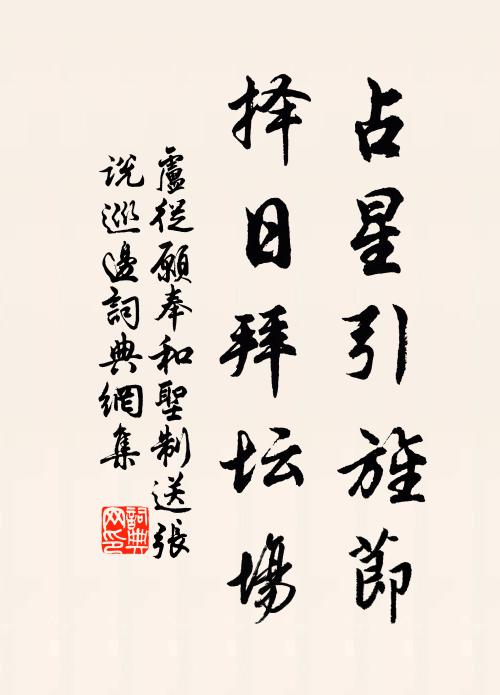 占星引旌節
择日拜坛場
盧從願奉和聖制送張
说巡邊詞典網集
詞典网印